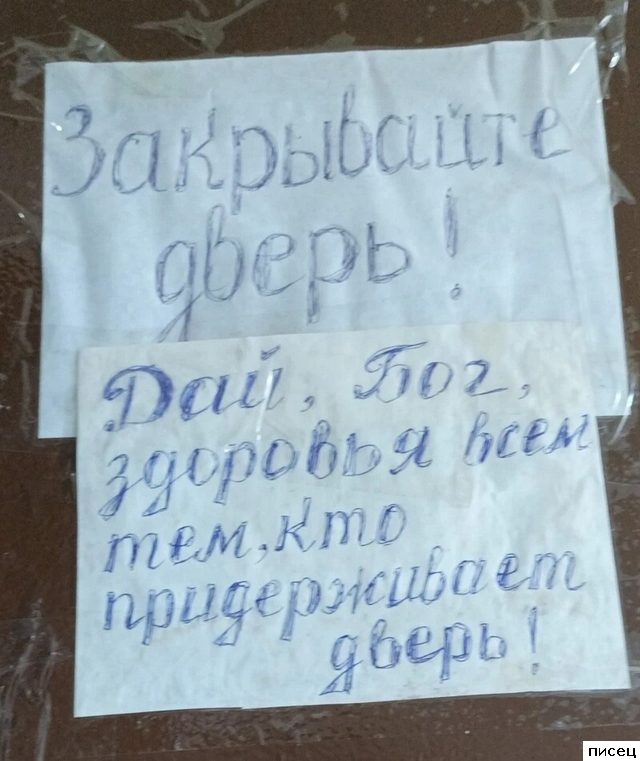 Закрывайте
дверь!
Дай, Бог,
здоровья всем
тем, кто
придерживает
дверь!
писец